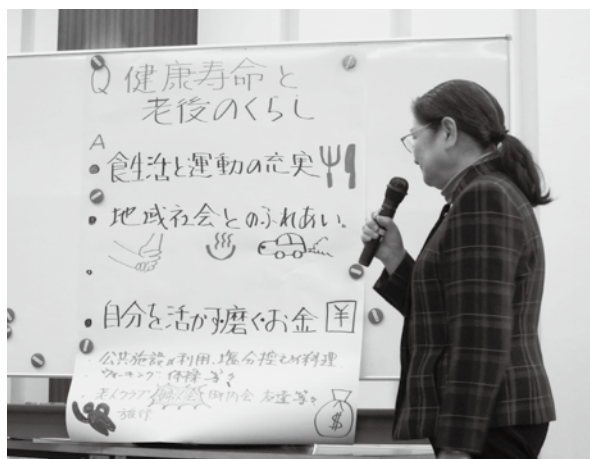 Q 健康寿命と
老後のくらし
A
• 食生活と運動の充実
• 地域社会とのふれあい。
•
• 自分を活かす・磨く・お金 ¥
・公共施設の利用、塩分控えめ料理
ウォーキング 体操 等々
・老人クラブ 町内会 友達 等々
旅行
$